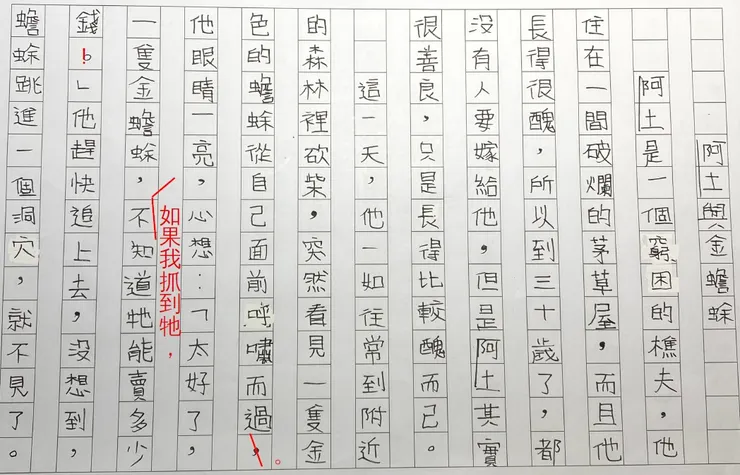 阿土與金蟾蜍
阿土是一個窮困的樵夫，他
住在一間破爛的茅草屋，而且他
長得很醜，所以到三十歲了，都
沒有人要嫁給他，但是阿土其實
很善良，只是長得比較醜而已。
這一天，他一如往常到附近
的森林裡砍柴，突然看見一隻金
色的蟾蜍從自己面前呼嘯而過，。
他眼睛一亮，心想：「太好了，
一隻金蟾蜍，不知道牠能賣多少
如果我抓到牠，
錢！」他趕快追上去，沒想到，
蟾蜍跳進一個洞穴，就不見了。